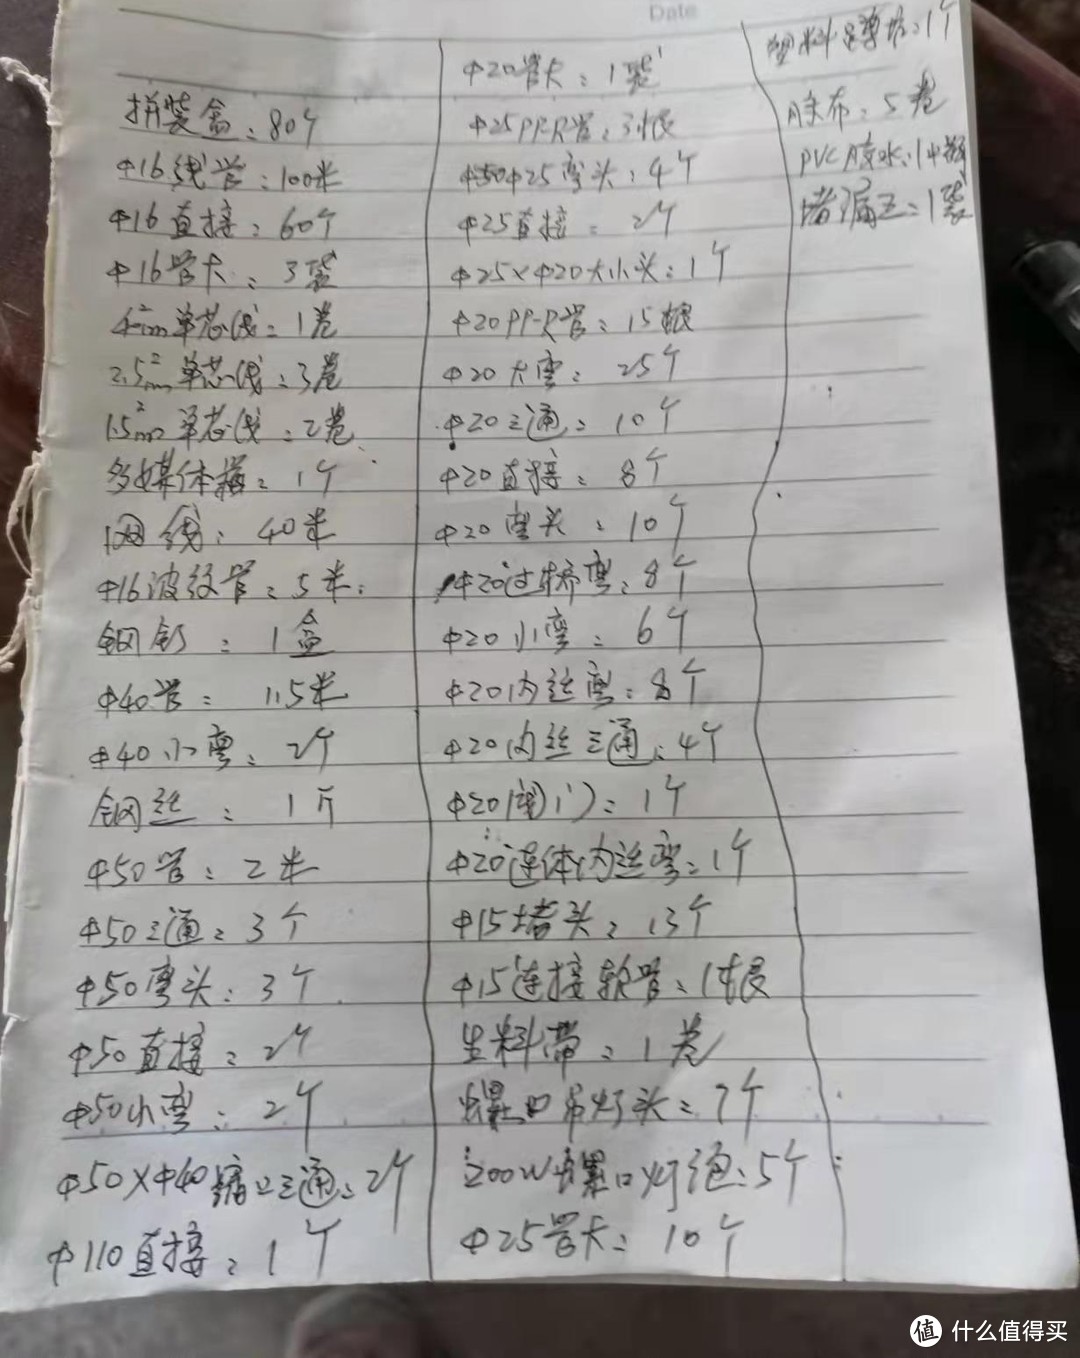 Date
拼装盒：80个
Φ16线管：100米
Φ16直接：60个
Φ16管卡：3袋
4mm²单芯线：1卷
2.5mm²单芯线：3卷
1.5mm²单芯线：2卷
多媒体箱：1个
网线：40米
Φ16波纹管：5米
钢钉：1盒
Φ40管：1.5米
Φ40小弯：2个
钢丝：1斤
Φ50管：2米
Φ50三通：3个
Φ50弯头：3个
Φ50直接：2个
Φ50小弯：2个
Φ50×Φ40缩口三通：2个
Φ110直接：1个
Φ20管卡：1袋
Φ25PP-R管：3根
Φ25弯头：4个
Φ25直接：2个
Φ25×Φ20大小头：1个
Φ20PP-R管：15根
Φ20大弯：25个
Φ20三通：10个
Φ20直接：8个
Φ20弯头：10个
Φ20过桥弯：8个
Φ20小弯：6个
Φ20内丝弯：8个
Φ20内丝三通：4个
Φ20阀门：1个
Φ20连体内丝弯：1个
Φ15堵头：13个
Φ15连接软管：1根
生料带：1卷
螺口吊灯头：7个
200W螺口灯泡：5个
Φ25管卡：10个
塑料：1个
：5卷
PVC胶水：1中瓶
堵漏王：1袋
值 什么值得买